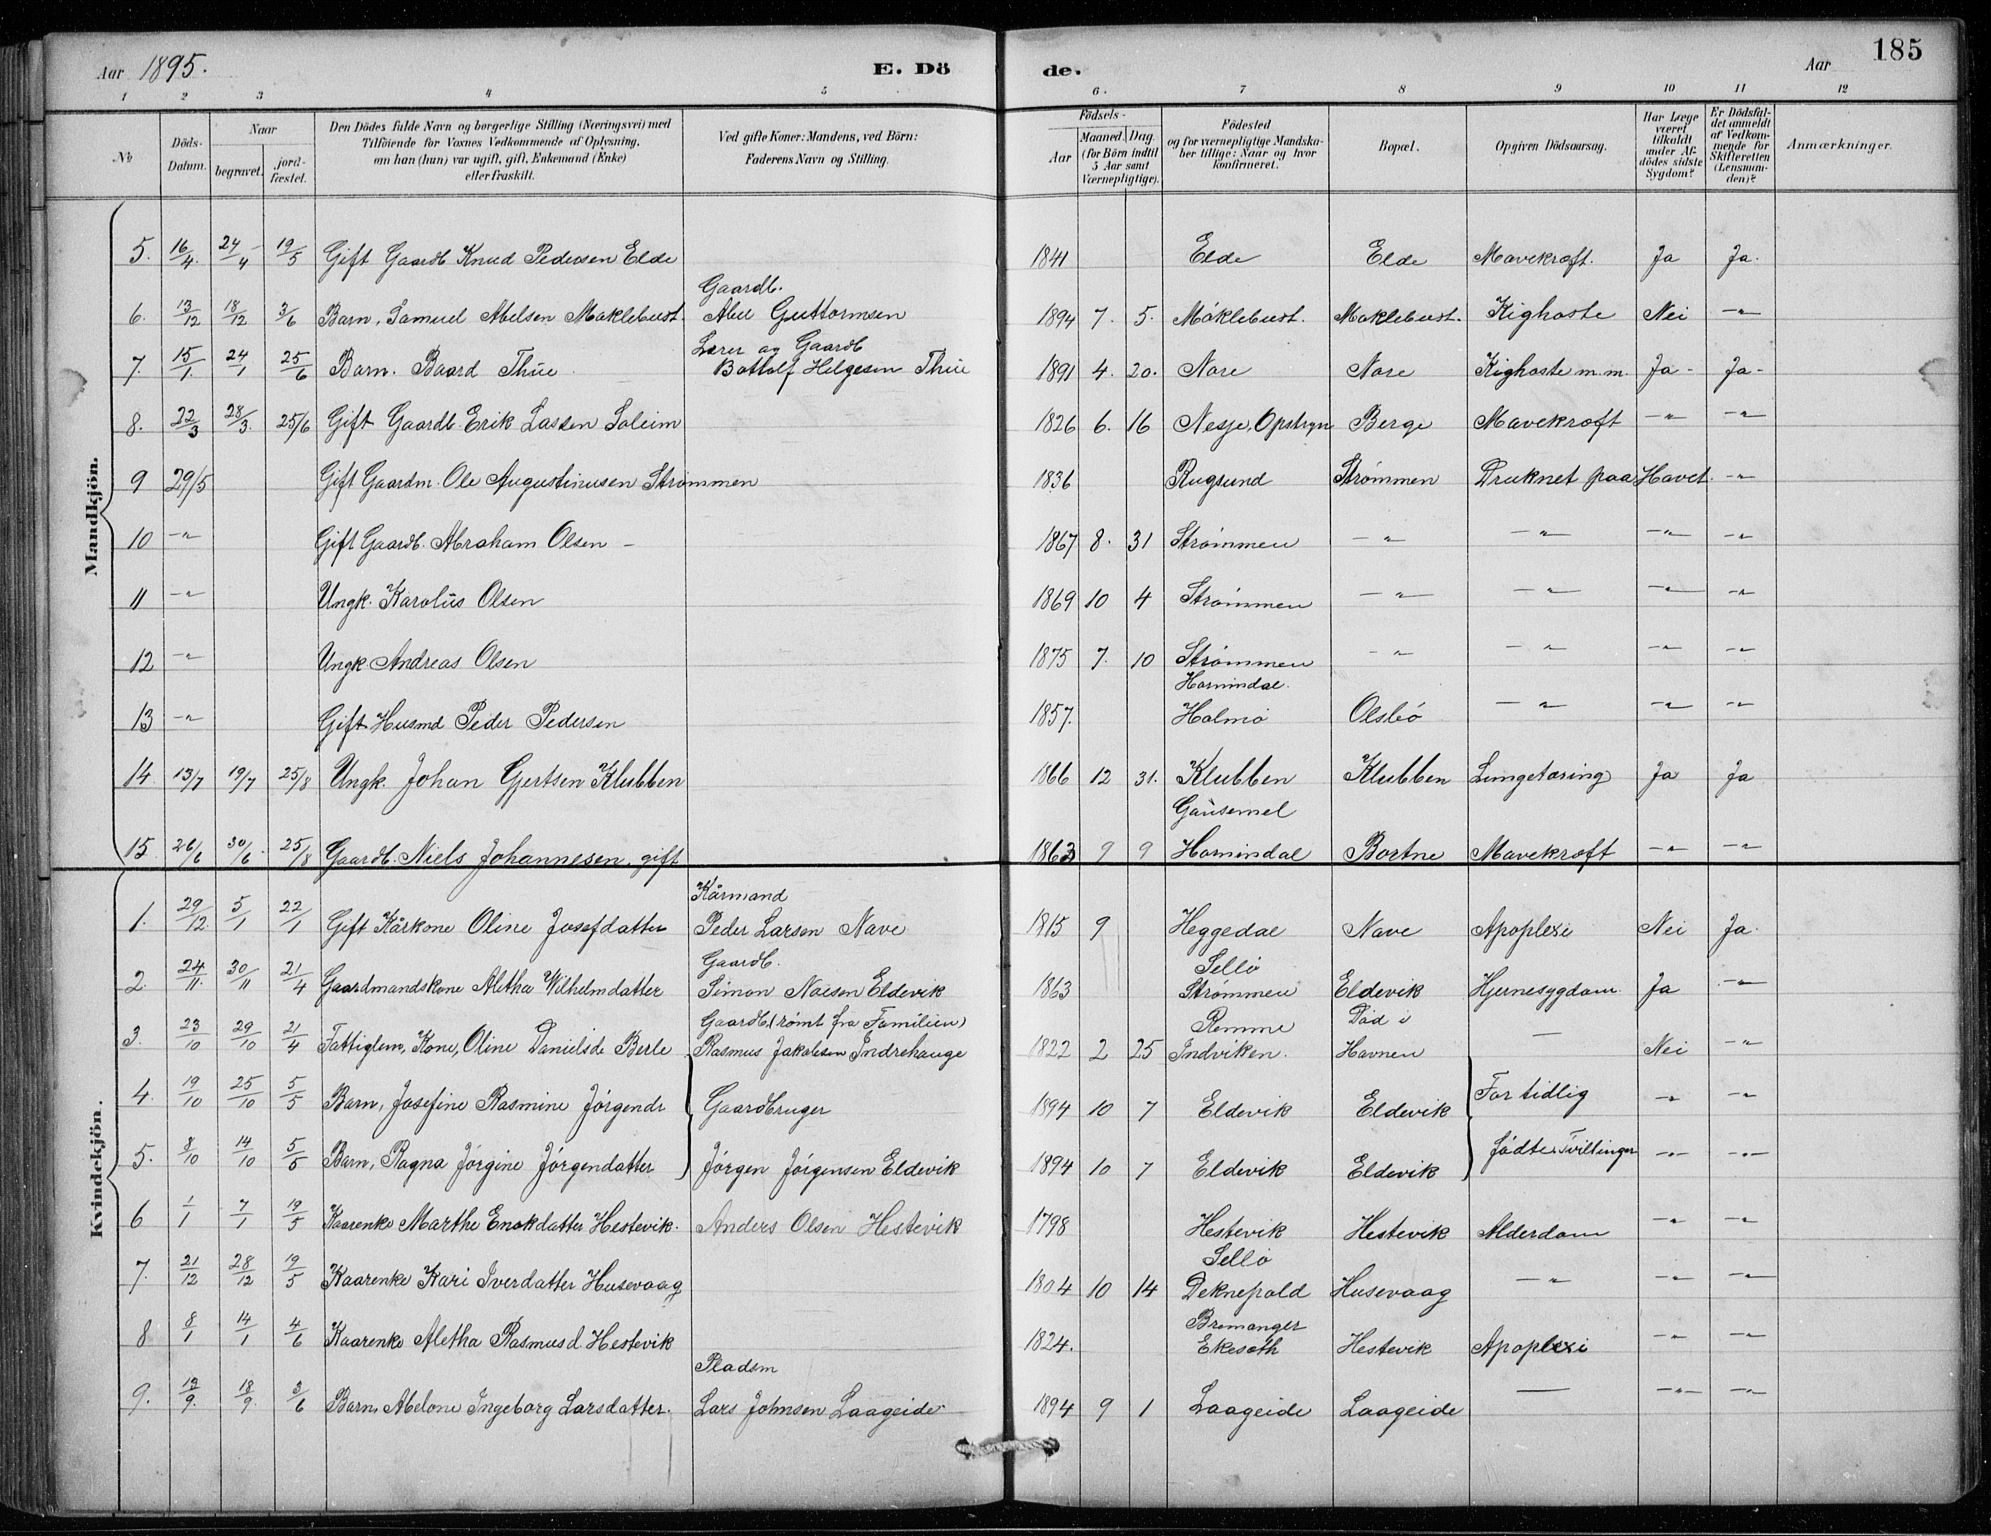 Aar 1895.
E. Dö
de.
Aar
185
1 2 3 4 5 6. 7 8 9 10 11 12
No
Döds-Datum.
Naar
begravet.
jord-fæstet.
Den Dödes fulde Navn og borgerlige Stilling (Næringsvei) med
Tilföiende for Voxnes Vedkommende af Oplysning,
om han (hun) var ugift, gift, Enkemand (Enke)
eller fraskilt.
Ved gifte Koner: Mandens, ved Börn:
Faderens Navn og Stilling.
Födsels-
Aar
Maaned. Dag.
(for Börn indtil
5 Aar samt
Værnepligtige).
Födested
og for værnepligtige Mandska-
ber tillige: Naar og hvor
konfirmeret.
Bopæl.
Opgiven Dödsaarsag.
Har Læge
været
tilkaldt
under Af-
dödes sidste
Sygdom?
Er Dödsfal-
det anmeldt
af Vedkom-
mende for
Skifteretten
(Lensman-
den)?
Anmærkninger.
Mandkjön.
5. 16/4. 24/4 19/5 Gift Gaardb Knud Pedersen Elde 1841 Elde Elde Mavekræft. Ja Ja.
Gaardb.
6. 13/12 18/12 3/6 Barn, Samuel Abelsen Maklebust. Abel Guttormsen 1894 7. 5. Møklebust. Maklebust. Kighoste Nei -"-
Lærer og Gaardb
7. 15/1. 24/1 25/6 Barn. Baard Thue Bottolf Helgesen Thue 1891 4. 20. Nore Nore Kighoste m.m. Ja - Ja -
8. 22/3 28/3. 25/6 Gift Gaardb. Erik Lassen Soleim 1826 6. 16 Nesje, Opstryn Berge Mavekræft -"- -"-
9 29/5 Gift Gaardm. Ole Augustinusen Strømmen 1836 Rugsund Strømmen Druknet paa Havet. -"-
10 -"- Gift Gaardb. Abraham Olsen - 1867 8. 31 Strømmen -"- -"- -"- -"-
11 -"- Ungk. Karolus Olsen 1869 10 4 Strømmen -"- -"- -"- -"-
12 -"- Ungk Andreas Olsen 1875 7. 10 Strømmen -"- -"- -"- -"-
Hornindal.
13 -"- Gift Husmd Peder Pedersen 1857. Holmø Olsbø -"- -"- -"-
14. 13/7 19/7 25/8 Ungk. Johan Gjertsen Klubben 1866 12 31. Klubben Klubben Lungetæring Ja Ja
Gausemel
15. 26/6 30/6. 25/8 Gaardb. Niels Johannesen, gift 1863 9 9 Hornindal Bortne Mavekræft -"- -"-
Kvindekjön.
Kårmand
1. 29/12. 5/1 22/1 Gift Kårkone Oline Josefdatter Peder Larsen Nave 1815 9 Heggedal Nave Apoplexi Nei Ja.
Gaardb. Sellø
2. 24/11. 30/11 21/4 Gaardmandskone Aletha Wilhelmdatter Simon Eldevik 1863 Strømmen Eldevik Hjernesygdom. Ja -"-
Gaardb. (rømt fra Familien) Remme Død i
3. 23/10 29/10 21/4 Fattiglem, Kone, Oline Danielsd Berle Rasmus Jakobsen Indrehauge 1822 2 25 Indviken. Havnen — Nei -"-
4. 19/10 25/10 5/5 Barn, Josefine Rasmine Jørgendr Gaardbruger 1894 10 7 Eldevik Eldevik For tidlig -"- -"-
5. 8/10 14/10 5/5 Barn, Ragna Jørgine Jørgendatter Jørgen Jørgensen Eldevik 1894 10 7 Eldevik Eldevik fødte Tvillinger -"- -"-
6 1/1 7/1 19/5 Kaarenke Marthe Enokdatter Hestevik. Anders Olsen Hestevik 1798 Hestevik Hestevik Alderdom -"- -"-
Sellø
7. 21/12 28/12 19/5 Kaarenke Kari Iverdatter Husevaag 1804 10 14 Deknepold Husevaag -"- -"- -"-
Bremanger
8 8/1 14/1 4/6 Kaarenke Aletha Rasmusd Hestevik 1824. Hestevik Apoplexi -"- -"-
Pladsm
9. 12/9. 18/9. 3/6 Barn, Abelone Ingeborg Larsdatter. Lars Johnsen Laageide 1894 9 1 Laageide Laageide — -"- -"-